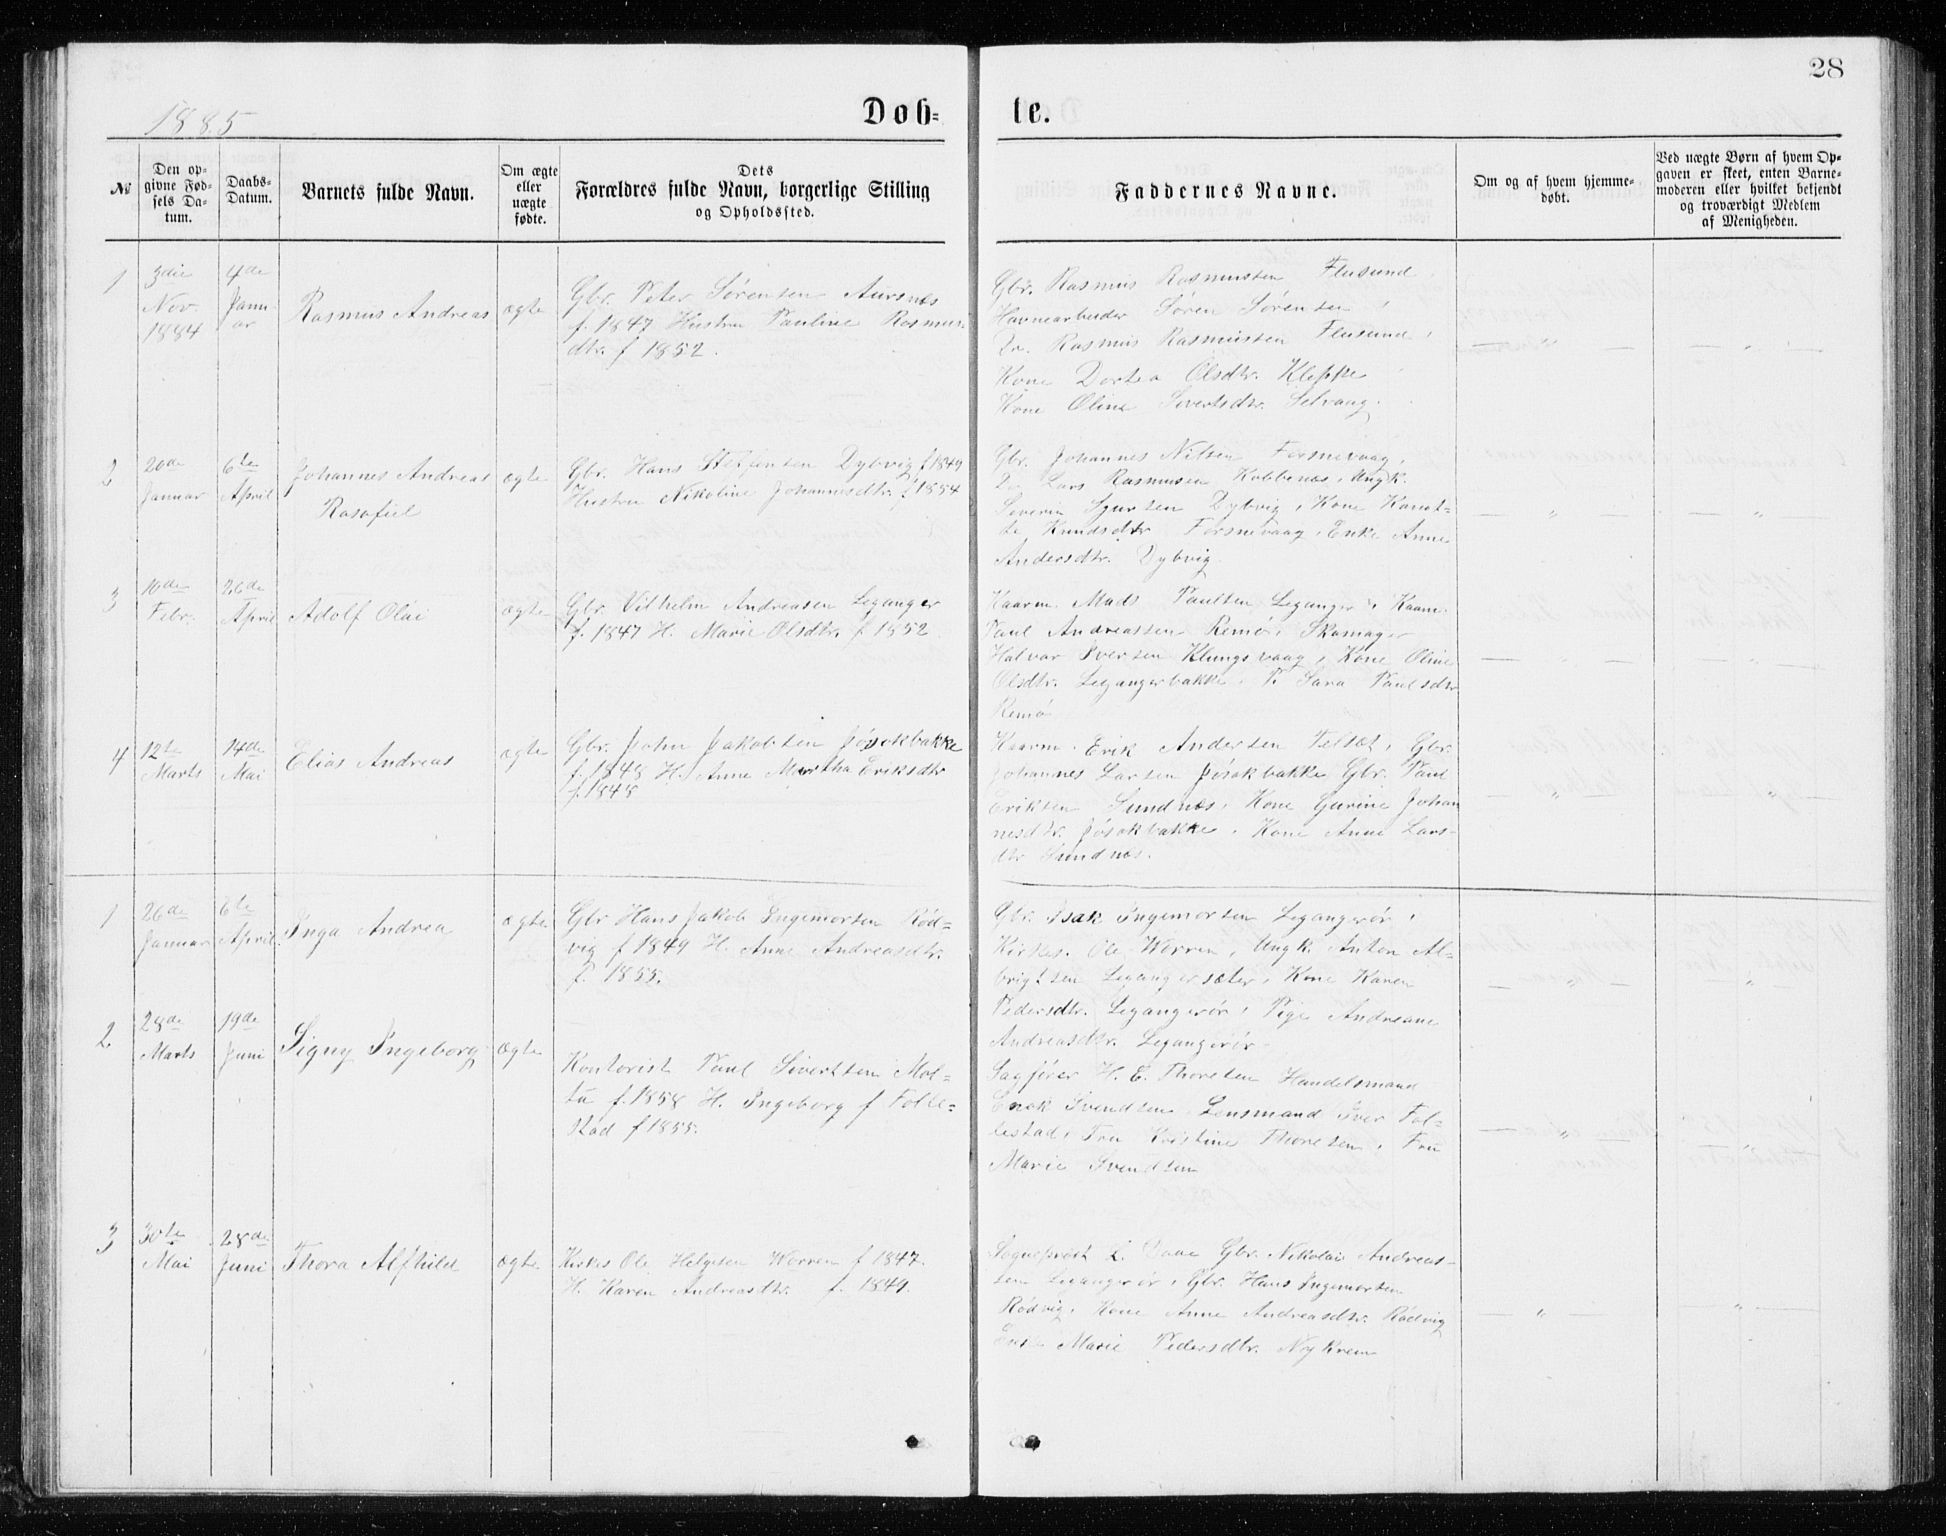 28
1885
Døb-
te.
№
Den op-
givne Fød-
sels Da-
tum.
Daabs-
Datum.
Barnets fulde Navn.
Om ægte
eller
uægte
fødte.
Dets
Forældres fulde Navn, borgerlige Stilling
og Opholdssted.
Faddernes Navne.
Om og af hvem hjemme-
døbt.
Ved uægte Børn af hvem Op-
gaven er skeet, enten Barne-
moderen eller hvilket bekjendt
og troværdigt Medlem
af Menigheden.
1
3die
Nov.
1884
4de
Janu-
ar
Rasmus Andreas
ægte
Gbr. Peter Sørensen Aursnæs
f. 1847 Hustru Pauline Rasmus-
dtr. f 1852.
Gbr. Rasmus Rasmussen Flusund,
Havnearbeider Søren Sørensen,
Dr. Rasmus Rasmussen Flusund,
Kone Dortea Olsdtr. Kleppe
Kone Oline Sivertsdtr. Selvaag.
— " —
— " —
2
20de
Januar
6te
April
Johannes Andreas
Rasafiel
ægte
Gbr. Hans Steffensen Dybvig f 1849
Hustru Nikoline Johannesdtr. f 1854
Gbr. Johannes Nilsen Forsnevaag,
Dr. Lars Rasmusen Kobbenæs, Ungk.
Severin Dybvig, Kone
Knudsdtr Forsnevaag, Enke Anne
Andersdtr. Dybvig.
— " —
— "
3
10de
Febr.
26de
April
Adolf Olai
ægte
Gbr. Vilhelm Andreasen Leganger
f. 1847 H. Marie Olsdtr. f 1852
Kaarm. Mads Paulsen Leganger, Kaarm.
Paul Andreassen Remø, Skomager
Halvar Iversen Klungsvaag, Kone Oline
Olsdtr. Legangerbakke, P. Sara Paulsdtr
Remø
— " —
— " —
4
12te
Marts
14de
Mai
Elias Andreas
ægte
Gbr. John Jakobsen Jøsokbakke
f. 1848 H. Anne Martha Eriksdtr
f. 1848
Kaarm. Erik Andersen Telsæt, Gbr.
Johannes Larsen Jøsokbakke Gbr. Paul
Eriksen Sundnæs, Kone Gurine Johan
nesdtr. Jøsokbakke, Kone Anne Lars-
dtr Sundnæs.
— " —
— " —
1
26de
Januar
6te
April
Inga Andrea
ægte
Gbr Hans Jakob Ingemorsen Rød-
vig f 1849 H. Anne Andreasdtr.
f. 1855.
Gbr. Isak Ingemorsen Legangerør,
Kirkes. Ole Worren, Ungk. Anton Al-
brigtsen Legangersæter, Kone Karen
Pedersdtr. Legangerør, Pige Andreane
Andreasdtr. Legangerør
— " —
— " —
2
28de
Marts
19de
Juni
Signy Ingeborg
ægte
Kontorist Paul Sivertsen Mol-
tu f. 1858 H. Ingeborg f Folle-
stad f 1855.
Sagfører H. E. Thoresen Handelsmand
Enok Svendsen Lensmand Iver Fol-
lestad, Fru Kristine Thoresen, Fru
Marie Svendsen
— " —
— " —
3
30te
Mai
28de
Juni
Thora Alfhild
ægte
Kirkes Ole Helgesen Worren f 1847.
H. Karen Andreasdtr. f. 1849.
Sogneprest L. Daae Gbr. Nikolai Andreas-
sen Legangerør, Gbr. Hans Ingemorsen
Rødvig, Kone Anne Andreasdtr. Rødvig
Enke Marie Pedersdtr. Nykrem
— " —
" —